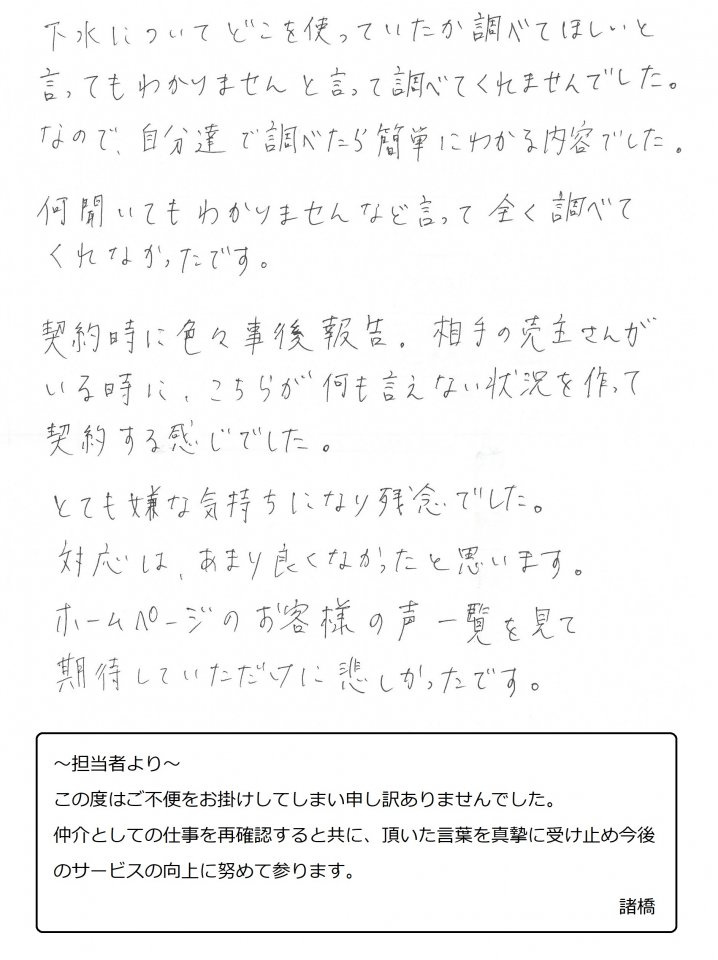 下水についてどこを使っていたか調べてほしいと
言ってもわかりませんと言って調べてくれませんでした。
なので、自分達で調べたら簡単にわかる内容でした。
何聞いてもわかりませんなど言って全く調べて
くれなかったです。
契約時に色々事後報告。相手の売主さんが
いる時に、こちらが何も言えない状況を作って
契約する感じでした。
とても嫌な気持ちになり残念でした。
対応は、あまり良くなかったと思います。
ホームページのお客様の声一覧を見て
期待していただけに悲しかったです。
～担当者より～
この度はご不便をお掛けしてしまい申し訳ありませんでした。
仲介としての仕事を再確認すると共に、頂いた言葉を真摯に受け止め今後
のサービスの向上に努めて参ります。
諸橋